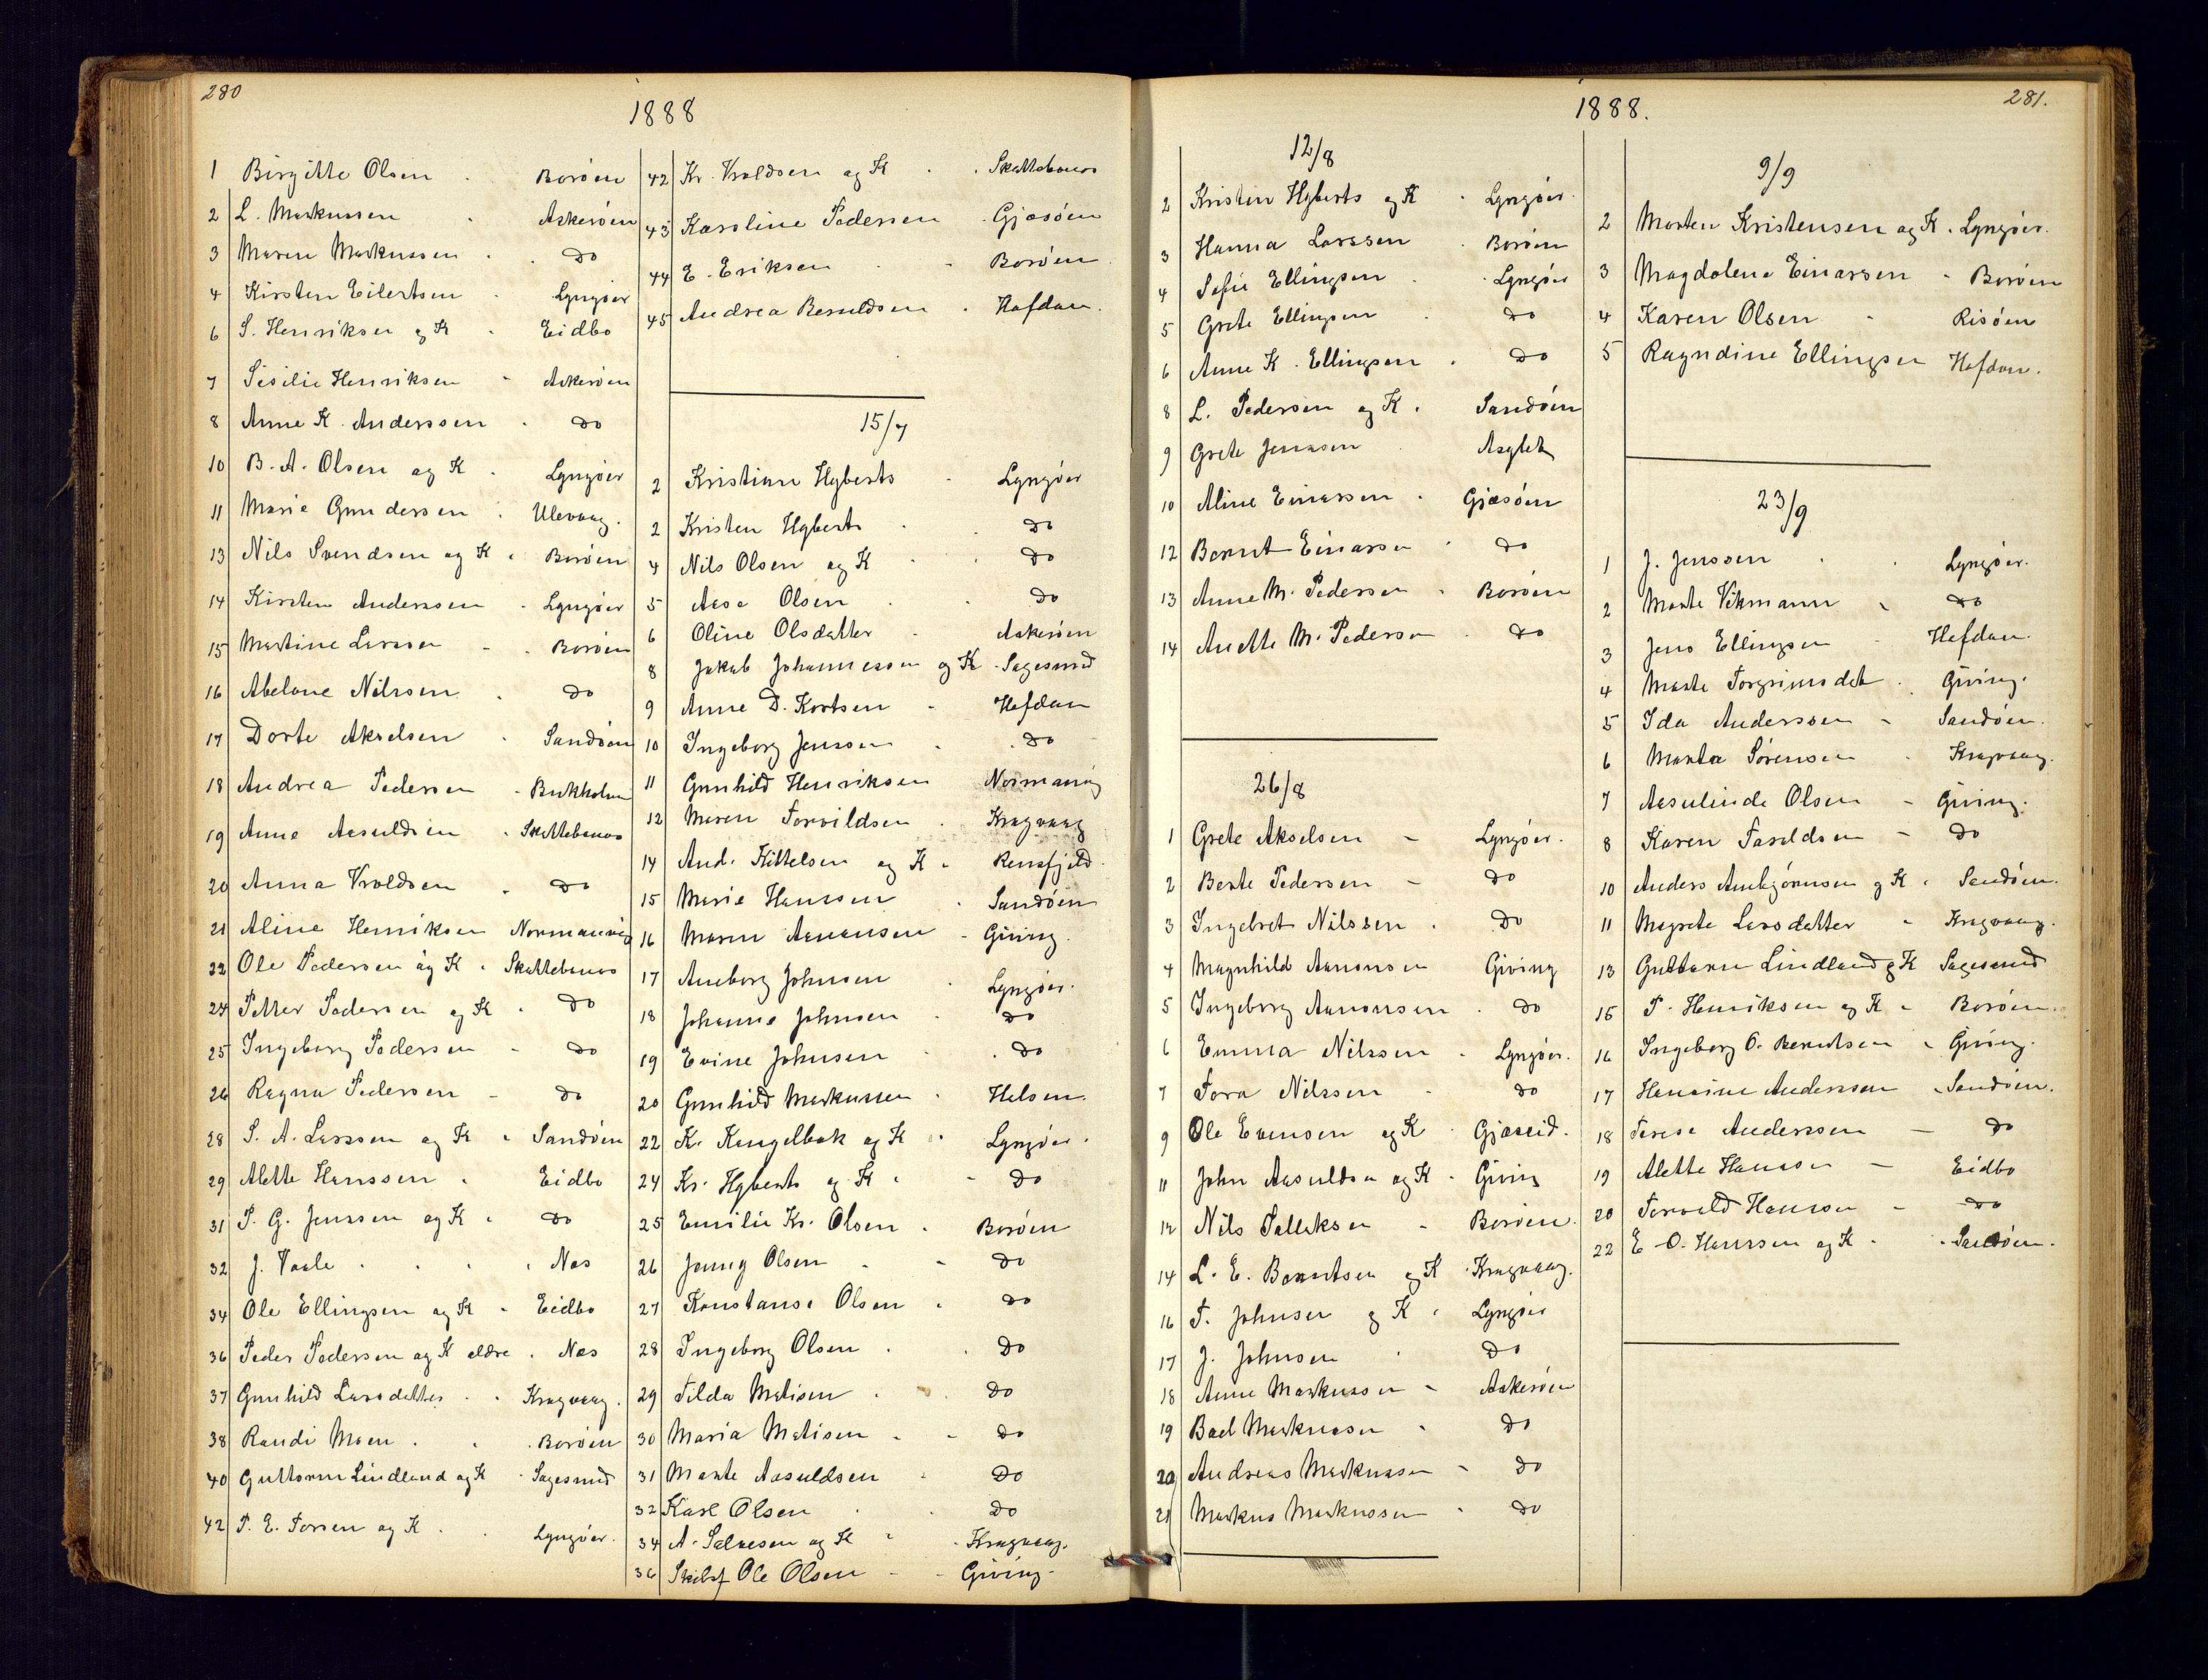 280
1888
1 Birgitte Olsen . Borøen
2 L. Markussen . Askerøen
3 Maren Markussen . . Do
4 Kirsten Eilertsen . Lyngøer
6 S. Henriksen og K . Eidbo
7 Sisilie Henriksen - Askerøen
8 Anne K. Anderssen . Do
10 B. A. Olsen og K . Lyngøer
11 Marie Gundersen . Ulevaag.
13 Nils Svendsen og K . Borøen
14 Kirsten Anderssen . Lyngøer
15 Martine Larssen - . Borøen
16 Abelone Nilssen . Do
17 Dorte Akselsen . Sandøen
18 Andrea Pedersen - Bukholmen
19 Anne Aasuldsen . Skattebenes
20 Anna Vroldsen . Do
21 Aline Henriksen Normanvig
22 Ole Pedersen og K . Skattebenes
24 Petter Pedersen og K . Do
25 Ingeborg Pedersen - Do
26 Ragna Pedersen - Do
28 S. A. Larssen og K . Sandøen
29 Alette Hanssen . Eidbo
31 P. G. Jenssen og K . Do
32 J. Vaale . . . . Nes
34 Ole Ellingsen og K . Eidbo
36 Peder Pedersen og K eldre . Nes
37 Gunhild Larsdatter . . Kragvaag.
38 Randi Moen . . . Borøen
40 Guttorm Lindland og K . Sagesund
42 T. E. Torsen og K . . Lyngøer.
42 Kr. Vroldsen og K . . Skattebenes
43 Karoline Pedersen . Gjæsøen
44 E. Eriksen . - Borøen
45 Andrea Beruldsen . Hafdan.
15/7
2 Kristian Hyberts - Lyngøer
2 Kristen Hyberts . Do
4 Nils Olsen og K . . Do
5 Aase Olsen . . Do
6 Oline Olsdatter . Askerøen
8 Jakob Johannessen og K . Sagesund
9 Anne D. Kortsen - Hafdan
10 Ingeborg Jenssen . . Do
11 Gunhild Henriksen Normanvig
12 Maren Torvildsen . Kragvaag
14 And. Kittelsen og K . Rensfjeld.
15 Marie Hanssen . Sandøen
16 Maren Aanensen - Giving.
17 Aneborg Johnsen . Lyngøer.
18 Johanne Johnsen . Do
19 Evine Johnsen . . Do
20 Gunhild Markussen . Holsen.
22 Kr. Kengelbak og K . Lyngøer.
24 Kr. Hyberts og K . - Do
25 Emilie Kr. Olsen . Borøen
26 Jenny Olsen . - Do
27 Konstanse Olsen . Do
28 Ingeborg Olsen . . Do
29 Tilda Matisen . . Do
30 Maria Matisen - - Do
31 Marte Aasuldsen - Do
32 Karl Olsen . Do
34 A. Salvesen og K . . Kragvaag.
36 Skibsf Ole Olsen - - Giving.
281.
1888.
12/8
2 Kristen Hyberts og K . Lyngøer.
3 Hanna Larssen . Borøen
4 Sofie Ellingsen . . Lyngøer
5 Grete Ellingsen . Do
6 Anne K. Ellingsen . Do
8 L. Pedersen og K . Sandøen
9 Grete Jenssen . Asglet
10 Aline Einarssen . Gjæsøen
12 Berent Einarsen . Do
13 Anne M. Pedersen . Borøen
14 Anette M. Pedersen . Do
26/8
1 Grete Akselsen - Lyngøer.
2 Berte Pedersen - Do
3 Ingebret Nilssen . Do
4 Magnhild Aanonsen Giving
5 Ingeborg Aanonsen . Do
6 Emma Nilssen - Lyngøer.
7 Tora Nilssen - Do
9 Ole Evensen og K . Gjæseid.
11 John Aasuldsen og K . Giving
12 Nils Tallaksen - Borøen.
14 L. E. Berntsen og K . Kragvaag.
16 T. Johnsen og K . Lyngøer
17 J. Johnsen . Do
18 Anne Markussen - Askerøen
19 Boel Markussen . Do
20 Andreas Markussen - Do
21 Markus Markussen . Do
9/9
2 Morten Kristensen og K . Lyngøer.
3 Magdalene Einarsen - Borøen
4 Karen Olsen . Risøen
5 Ragndine Ellingsen Hafdan.
23/9
1 J. Jenssen . . Lyngøer.
2 Marte Vikmann . Do
3 Jens Ellingsen - Hafdan.
4 Marte Torgrimsdat . Giving.
5 Ida Anderssen - Sandøen.
6 Marta Sørensen . Kragvaag.
7 Aasulinde Olsen - Giving.
8 Karen Taraldsen - Do
10 Anders Anbjørnsen og K . Sandøen.
11 Magrete Larsdatter - Kragvaag.
13 Guttorm Lindland og K Sagesund
15 T. Henriksen og K - Borøen.
16 Ingeborg O. Berntsen . Giving.
17 Hansine Anderssen . Sandøen.
18 Terese Anderssen - Do
19 Alette Hanssen - Eidbo
20 Torvald Hanssen - Do
22 E. O. Hanssen og K . . Sandøen.